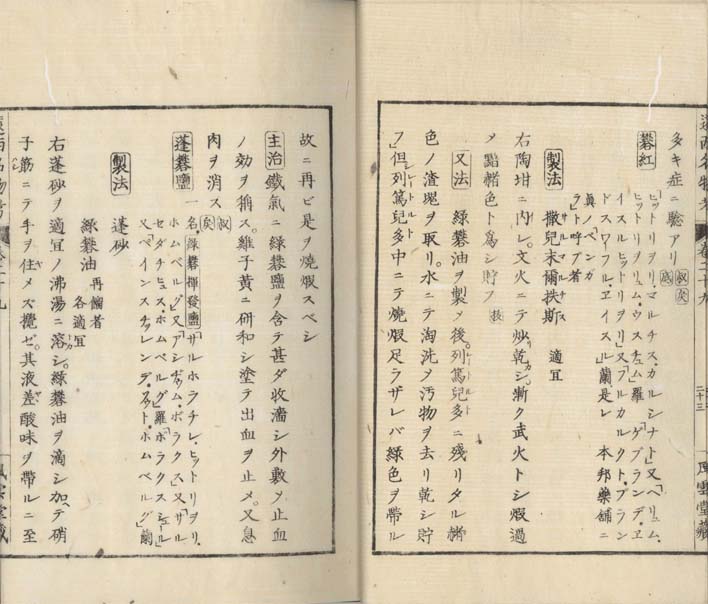 タキ症ニ驗アリ
礬紅
ヒットリヲリ・マルチス・カルシナト」又「ペリュム・
ヒットリヲリュム・ウスチュム」羅「ゲブランデ・ヱ
イスルヒットリヲリ」又「ブルカルクト・ブラン
ドスワフル・ヱイスル」蘭是レ 本邦藥舖ニ
眞ノ「ベンガ
ラ」ト呼ブ者
製法 撒兒末爾扶斯 適宜
サルマルチス
右陶坩ニ內レ。文火ニテ炒乾シ漸ク武火トシ煆過
メ黯赭色ト爲シ貯フ
又法 綠礬油ヲ製メ後。列篤兒多ニ殘リタル赭
色ノ渣塊ヲ取リ。水ニテ淘洗メ汚物ヲ去リ乾シ貯
フ」但列篤兒多中ニテ燒煆足ラザレバ綠色ヲ帶ル
レートルト
遠西名物考
卷二十九
二十三
風雲堂藏
故ニ再ビ是ヲ燒煆スベシ
主治 鐵氣ニ綠礬鹽ヲ含テ甚ダ收濇シ外敷メ止血
ノ効ヲ稱ス。雞子黃ニ研和シ塗テ出血ヲ止メ。又息
肉ヲ消ス
蓬礬鹽 一名綠礬揮發鹽
「サルホラチレ・ヒットリヲリ・
ホムベルグ」又「アシヂュム・ボラクス」又「サル・
セダチヒュス・ホムベルグ」羅「ボラクスシュール」
又「ペインスチルレンデ・ソウト・ホムベルグ」蘭
製法 蓬砂
綠礬油 再餾者
各適宜
右蓬砂ヲ適宜ノ沸湯ニ溶シ。綠礬油ヲ滴シ加ヘテ硝
子筯ニテ手ヲ住メズ攪ゼ。其液差酸味ヲ帶ルニ至